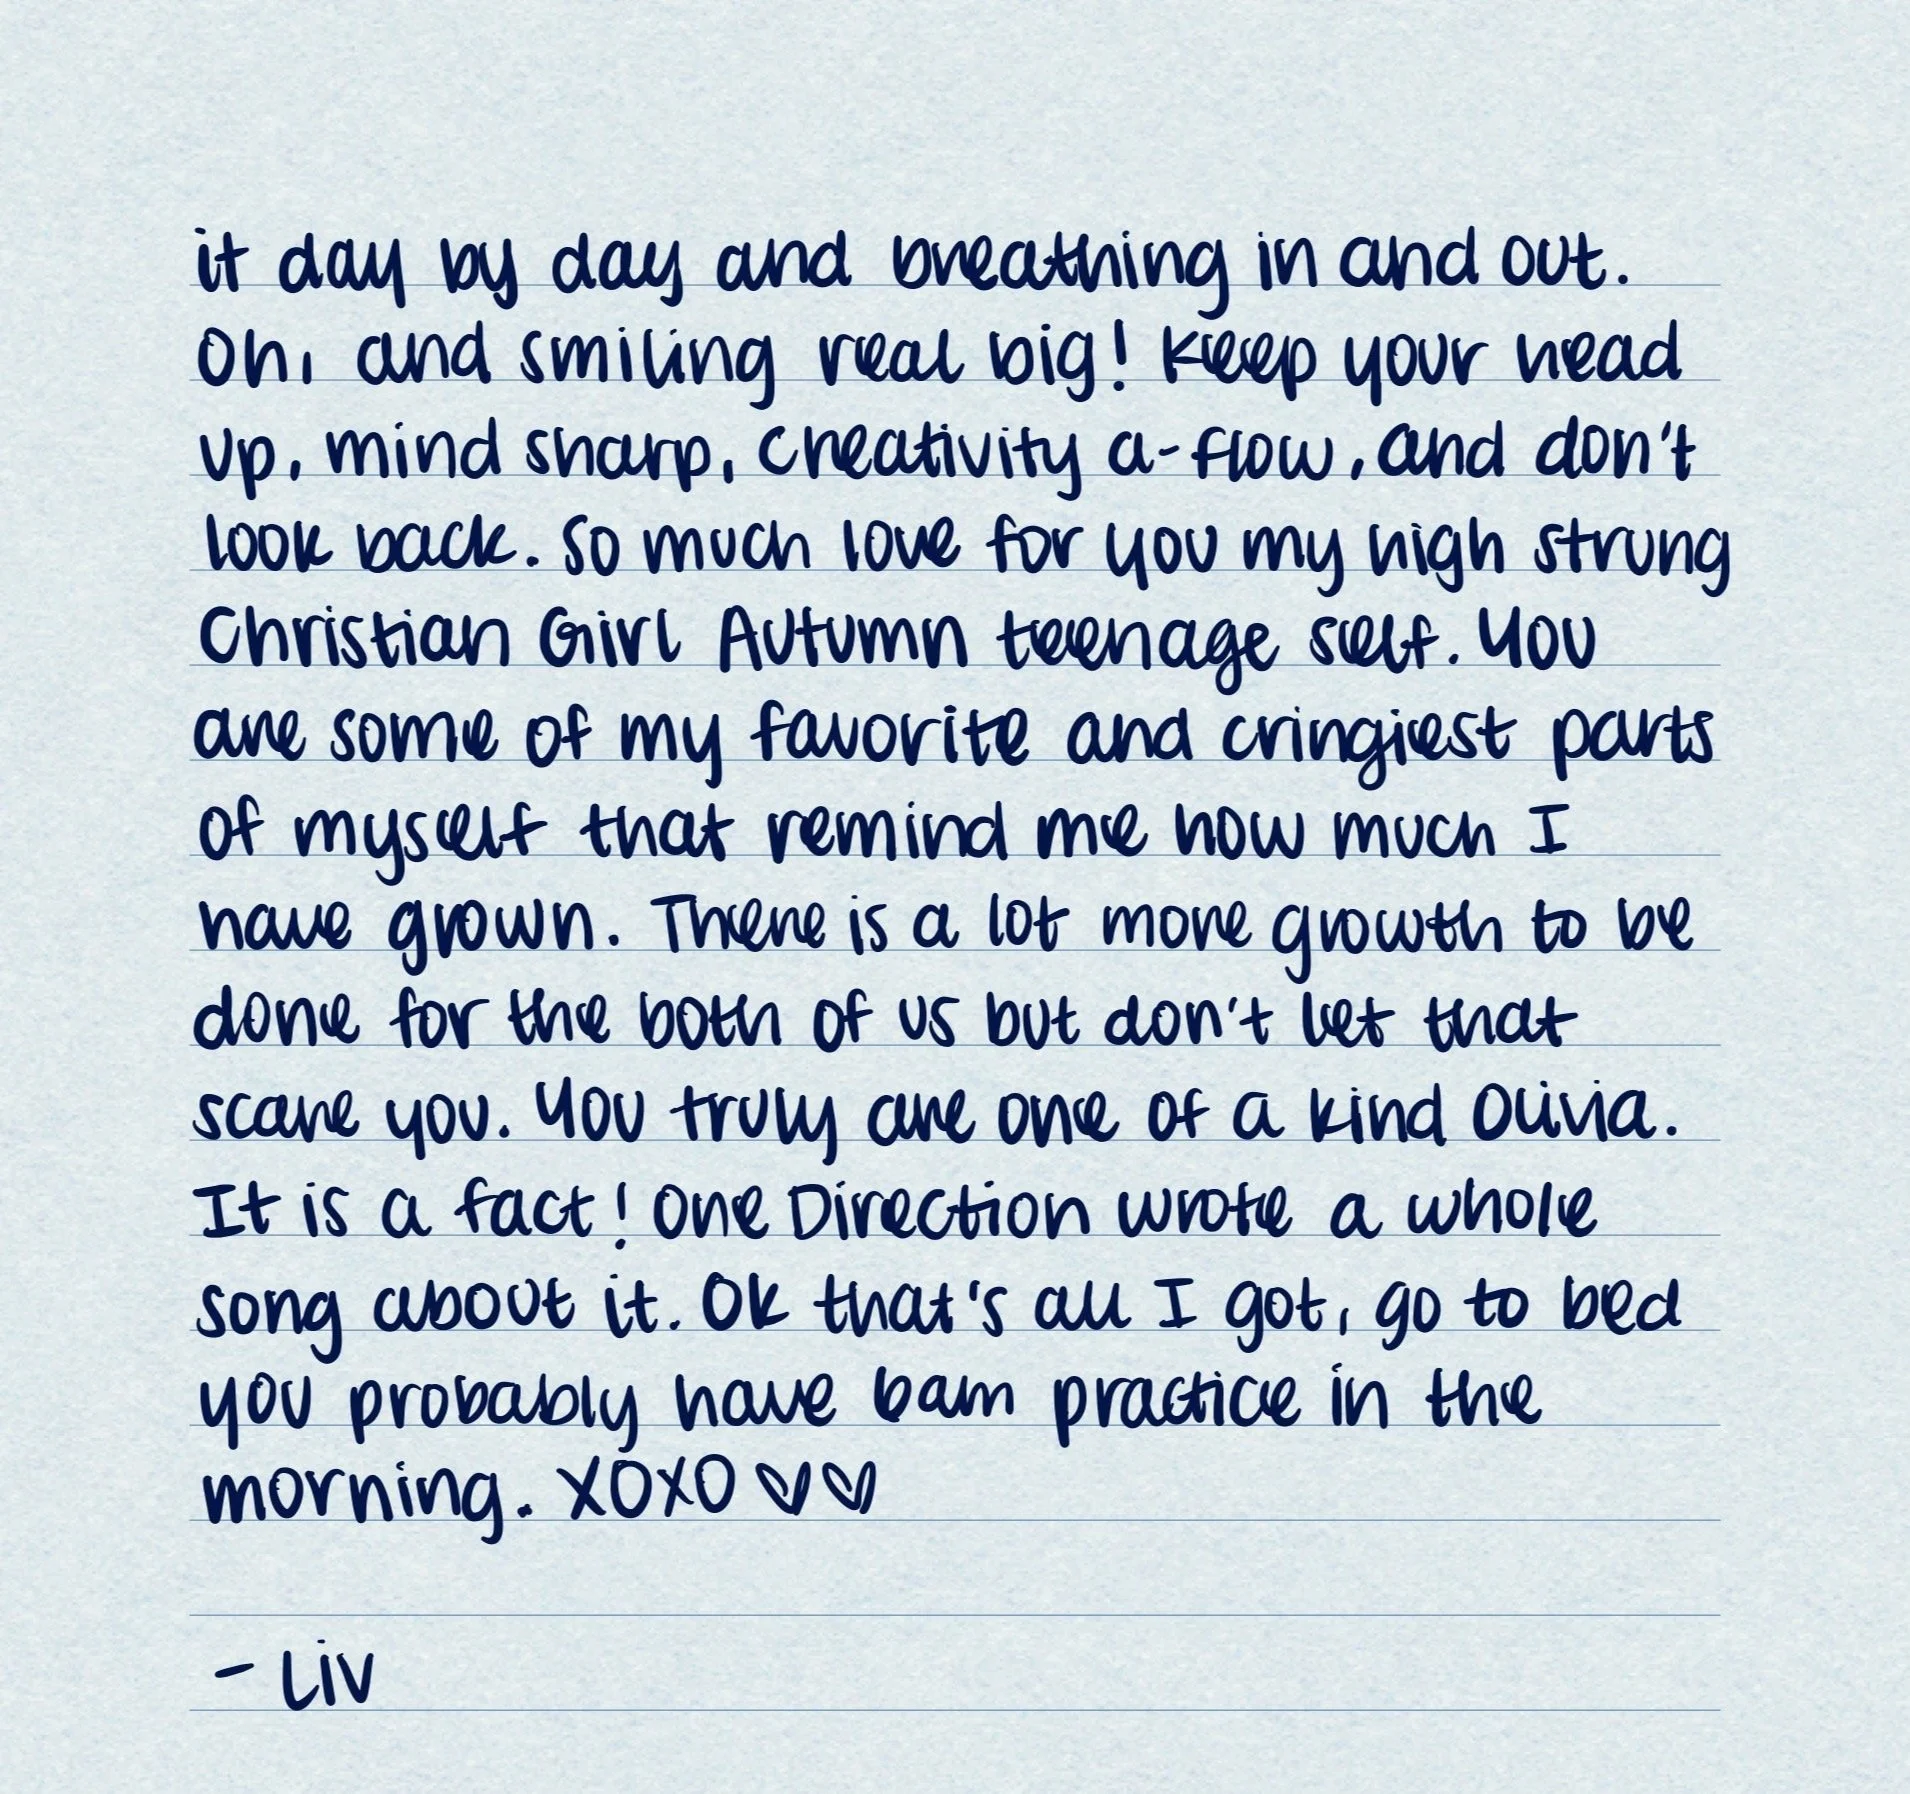 it day by day and breathing in and out.
Oh, and smiling real big! Keep your head
up, mind sharp, creativity a-flow, and don't
look back. So much love for you my high strung
Christian Girl Autumn teenage self. You
are some of my favorite and cringiest parts
of myself that remind me how much I
have grown. There is a lot more growth to be
done for the both of us but don't let that
scare you. You truly are one of a kind Olivia.
It is a fact! One Direction wrote a whole
song about it. Ok that's all I got, go to bed
you probably have 6am practice in the
morning. XOXO ♡♡
- Liv